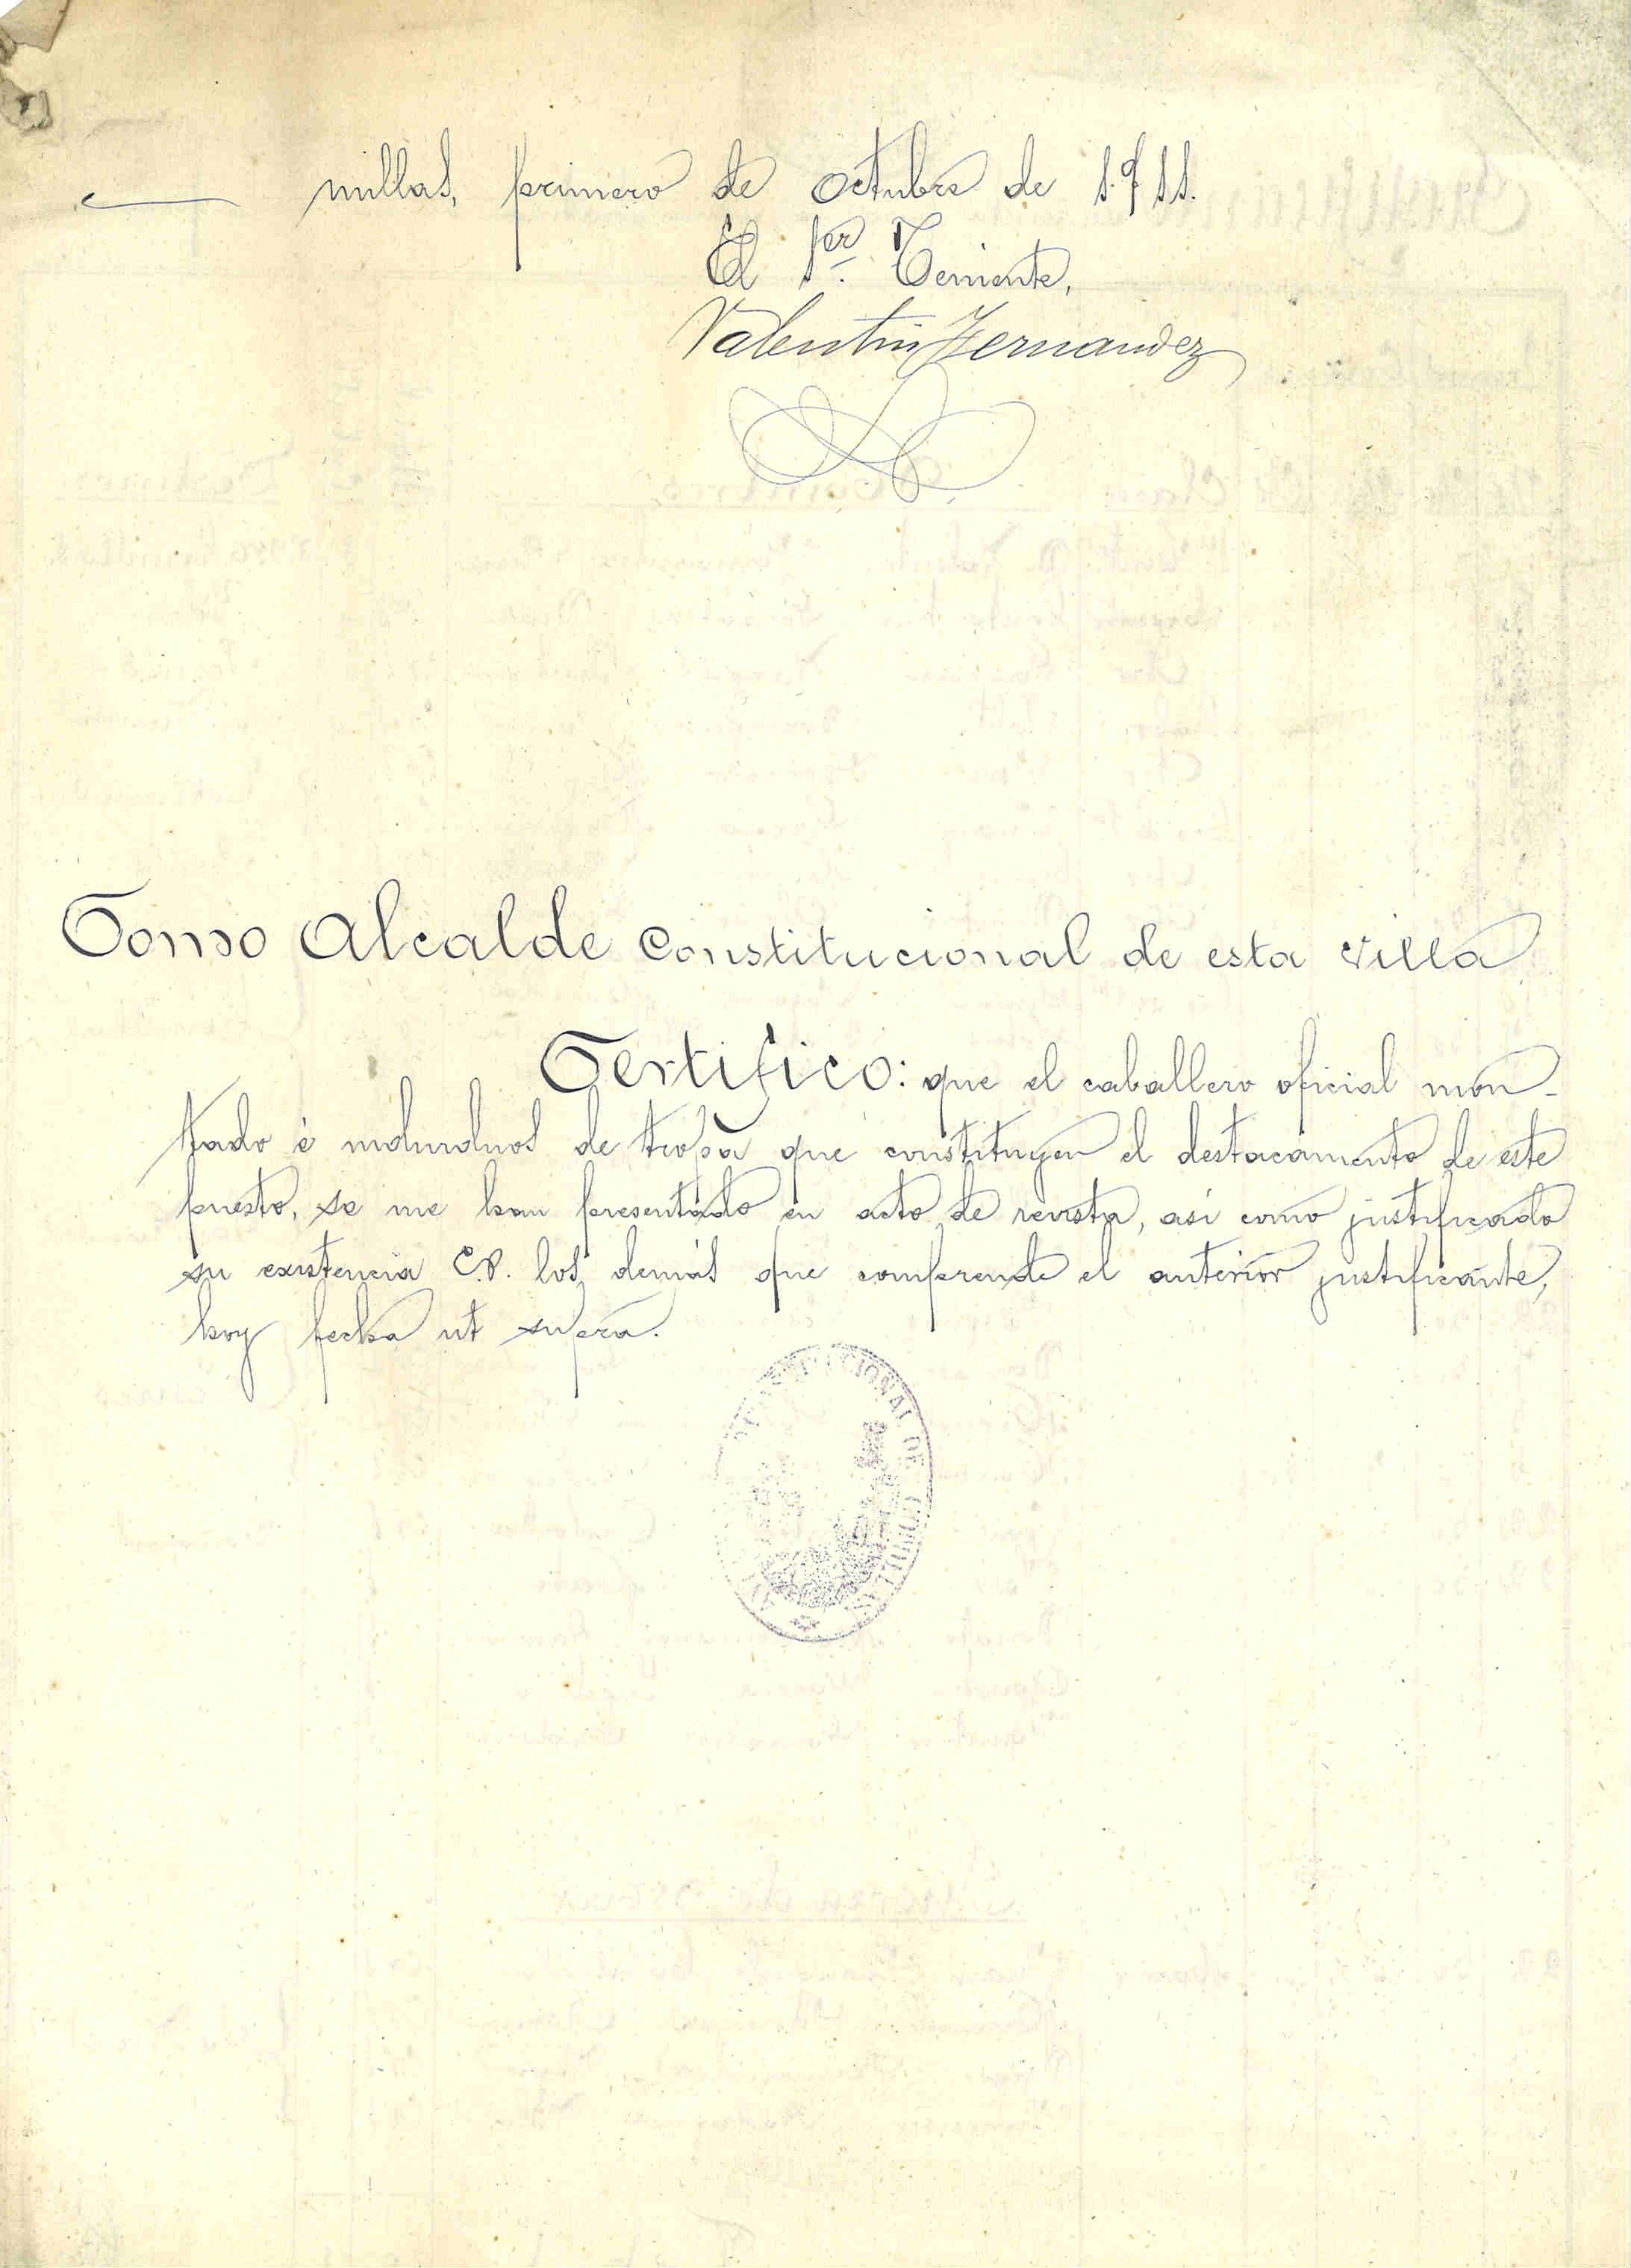 millas, primero de octubre de 1.911.
El 1er. Teniente,
Valentin Fernandez
Como Alcalde Constitucional de esta villa
Certifico: que el caballero oficial mon-
tado é individuos de tropa que constituyen el destacamento de este
puesto, se me han presentado en acto de revista, asi como justificado
su existencia C.P. los demás que comprende el anterior justificante,
hoy fecha ut supra.
CIONAL DE